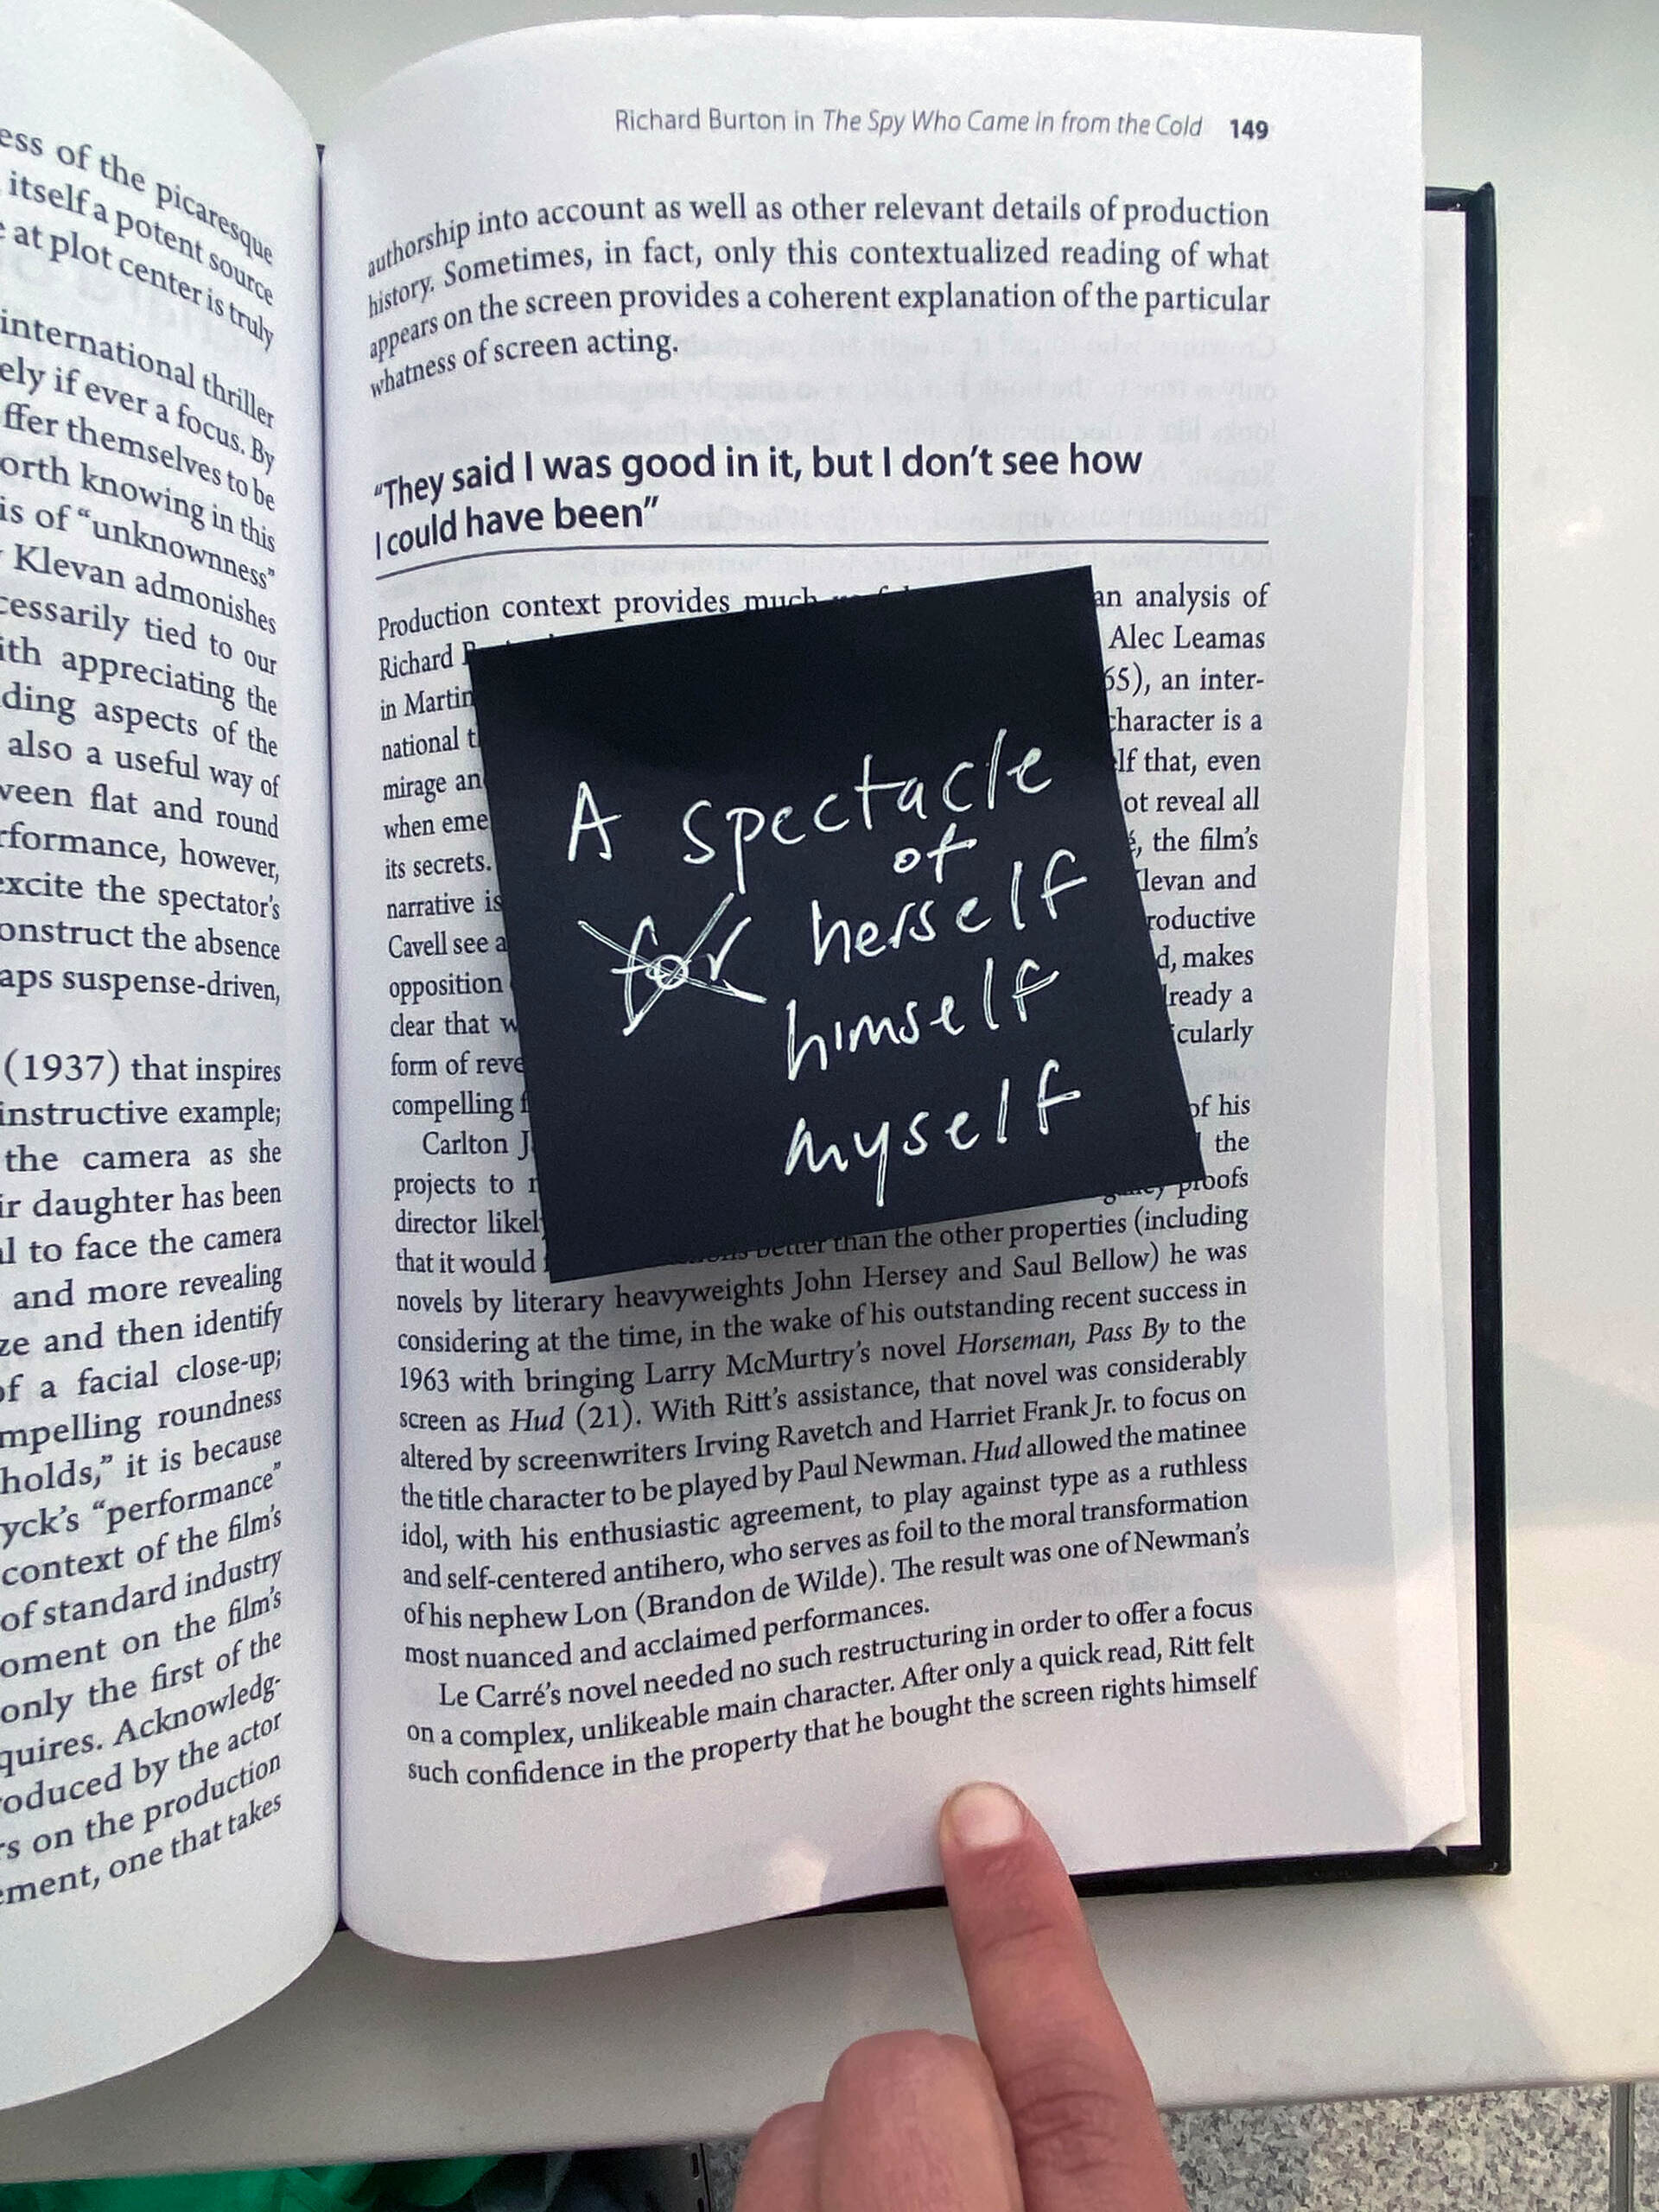 ess of the picaresque
itself a potent source
at plot center is truly
international thriller
ely if ever a focus. By
ffer themselves to be
orth knowing in this
is of “unknownness”
Klevan admonishes
cessarily tied to our
ith appreciating the
ding aspects of the
also a useful way of
ween flat and round
rformance, however,
excite the spectator’s
onstruct the absence
aps suspense-driven,
(1937) that inspires
instructive example;
the camera as she
ir daughter has been
al to face the camera
and more revealing
ze and then identify
of a facial close-up;
mpelling roundness
holds,” it is because
yck’s “performance”
context of the film’s
of standard industry
oment on the film’s
only the first of the
quires. Acknowledg-
roduced by the actor
rs on the production
ement, one that takes
Richard Burton in The Spy Who Came in from the Cold 149
authorship into account as well as other relevant details of production
history. Sometimes, in fact, only this contextualized reading of what
appears on the screen provides a coherent explanation of the particular
whatness of screen acting.
“They said I was good in it, but I don’t see how
I could have been”
Production context provides much an analysis of
Richard Alec Leamas
in Martin 65), an inter-
national character is a
mirage an elf that, even
when eme ot reveal all
its secrets. the film’s
narrative is Klevan and
Cavell see a roductive
opposition d, makes
clear that w lready a
form of reve icularly
compelling
Carlton J of his
projects to the
director likely proofs
that it would better than the other properties (including
novels by literary heavyweights John Hersey and Saul Bellow) he was
considering at the time, in the wake of his outstanding recent success in
1963 with bringing Larry McMurtry’s novel Horseman, Pass By to the
screen as Hud (21). With Ritt’s assistance, that novel was considerably
altered by screenwriters Irving Ravetch and Harriet Frank Jr. to focus on
the title character to be played by Paul Newman. Hud allowed the matinee
idol, with his enthusiastic agreement, to play against type as a ruthless
and self-centered antihero, who serves as foil to the moral transformation
of his nephew Lon (Brandon de Wilde). The result was one of Newman’s
most nuanced and acclaimed performances.
Le Carré’s novel needed no such restructuring in order to offer a focus
on a complex, unlikeable main character. After only a quick read, Ritt felt
such confidence in the property that he bought the screen rights himself
A spectacle
of
for herself
himself
myself